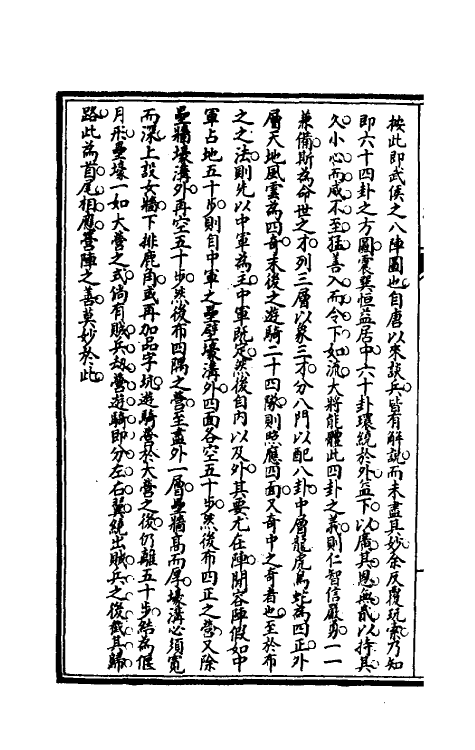 按此即武侯之八陣圖也自唐以來談兵皆有解說而未盡其妙余反覆玩索乃知
即六十四卦之方圖震巽恒益居中六十卦環繞於外益下以廣其恩無貳以持其
久小心而威不至猛善入而令下如流大將能體此四卦之義則仁智信嚴勇一一
兼備斯為命世之才列三層以象三才分八門以配八卦中層龍虎鳥蛇為四正外
層天地風雲為四奇末後之遊騎二十四隊則照應四面又奇中之奇者也至於布
之之法則先以中軍為主中軍既定然後自內以及外其要尤在陣間容陣假如中
軍占地五十步則自中軍之壘壁壕溝外四面各空五十步然後布四正之營又除
壘牆壕溝外再空五十步然後布四隅之營至盡外一層壘牆高而厚壕溝必須寬
而深上設女牆下排鹿角或再加品字坑遊騎營於大營之後仍離五十步結為偃
月形壘壕一如大營之式倘有賊兵劫營遊騎即分左右翼繞出賊兵之後截其歸
路此為首尾相應營陣之善莫妙於此